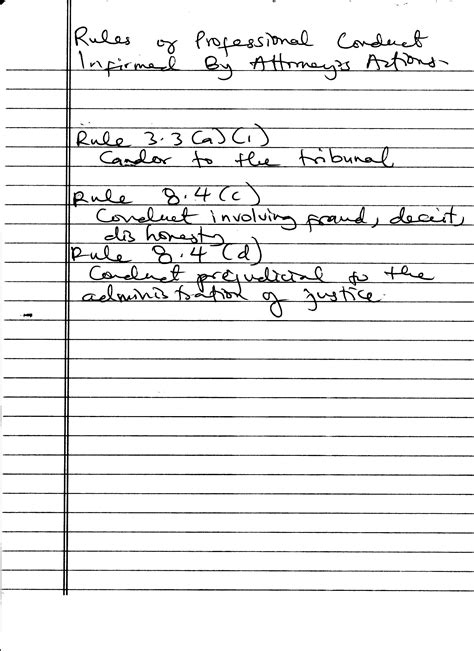 Rules of Professional Conduct
Infirmed By Attorney's Actions-
Rule 3.3 (a) (1)
Candor to the tribunal
Rule 8.4 (c)
Conduct involving fraud, deceit,
dishonesty
Rule 8.4 (d)
Conduct prejudicial to the
administration of justice.